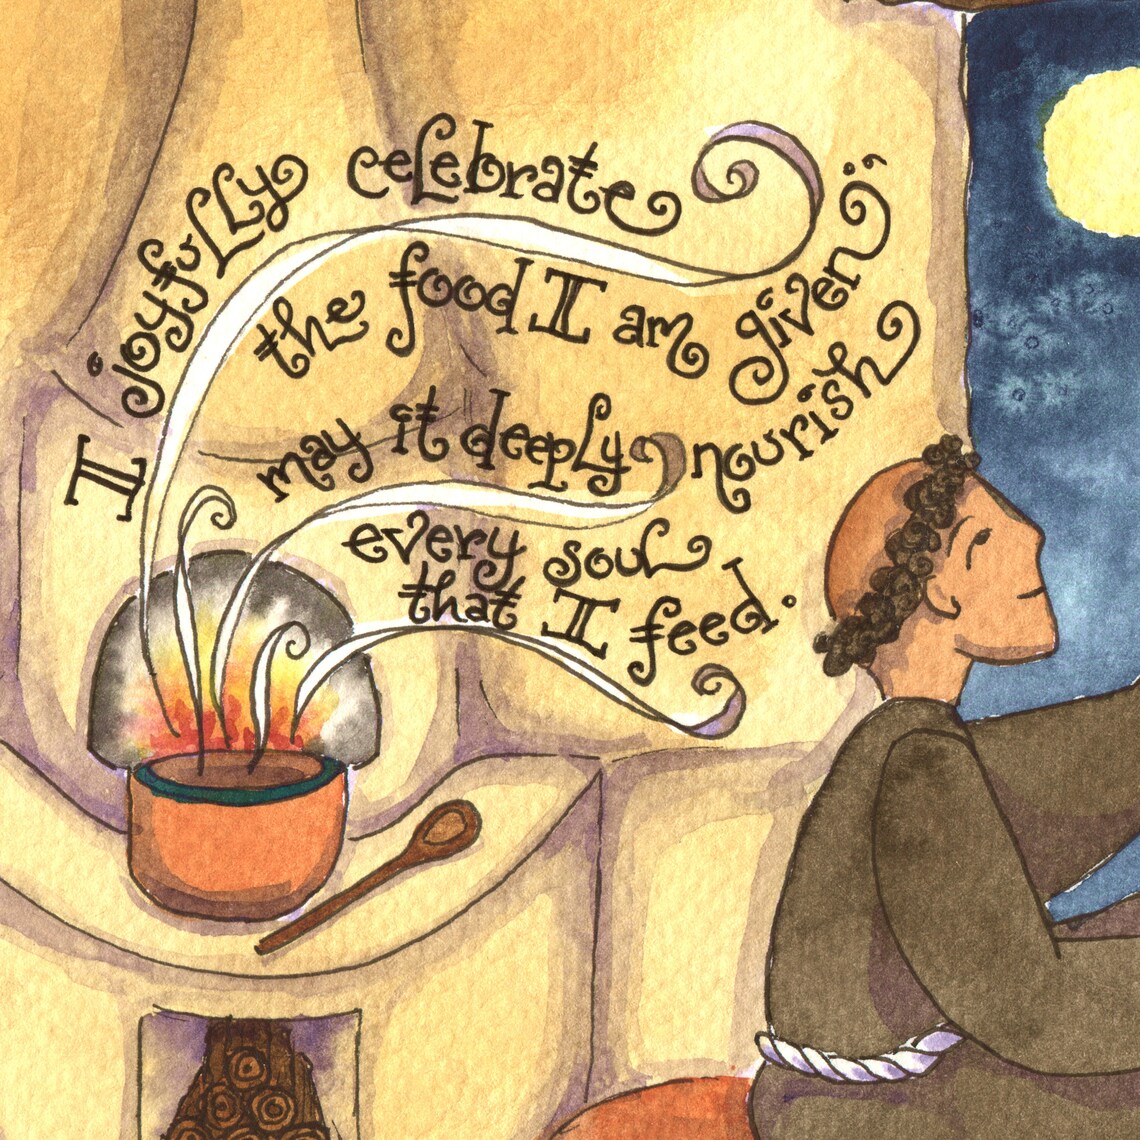 I joyfully celebrate
the food I am given;
may it deeply nourish
every soul
that I feed.